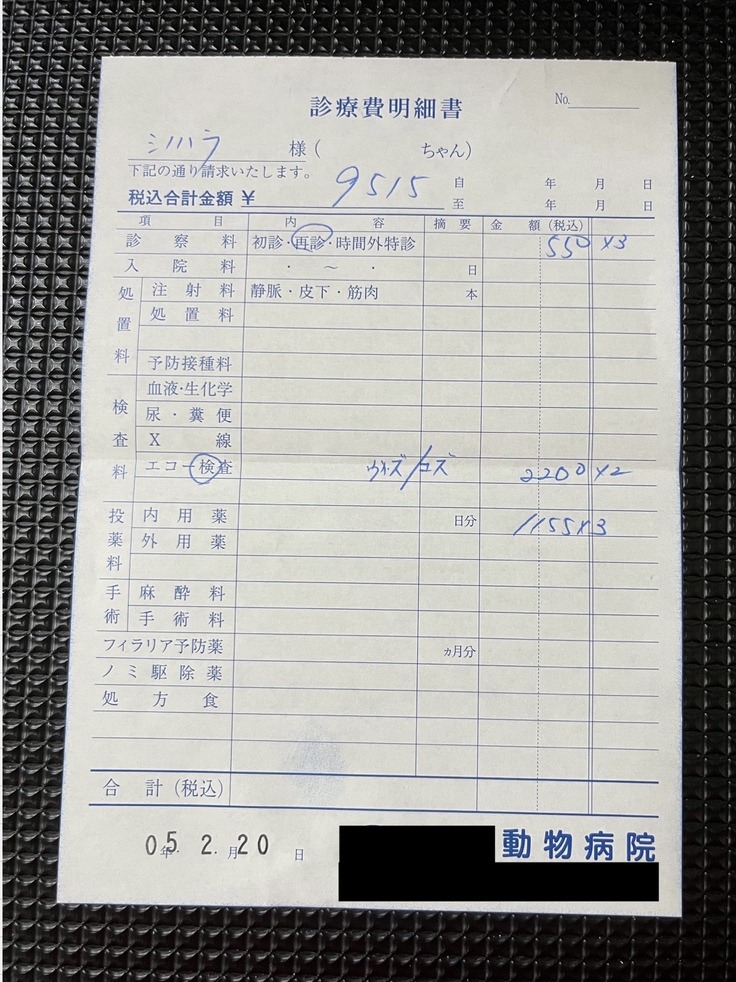 診療費明細書
No.
シハラ 様( ちゃん)
下記の通り請求いたします。
税込合計金額 ¥ 9515
自 年 月 日
至 年 月 日
項 目 内 容 摘 要 金 額(税込)
診 察 料 初診・再診・時間外特診 550 ×3
入 院 料 ・ ~ ・ 日
処置料
注 射 料 静脈・皮下・筋肉 本
処 置 料
予防接種料
検査料
血液・生化学
尿・糞便
X 線
エコー検査 ウイズ/コズ 2200 ×2
投薬料
内 用 薬 日分 1155×3
外 用 薬
手術
麻 酔 料
手 術 料
フィラリア予防薬 ヵ月分
ノミ駆除薬
処 方 食
合 計(税込)
05年 2.月20 日
動物病院